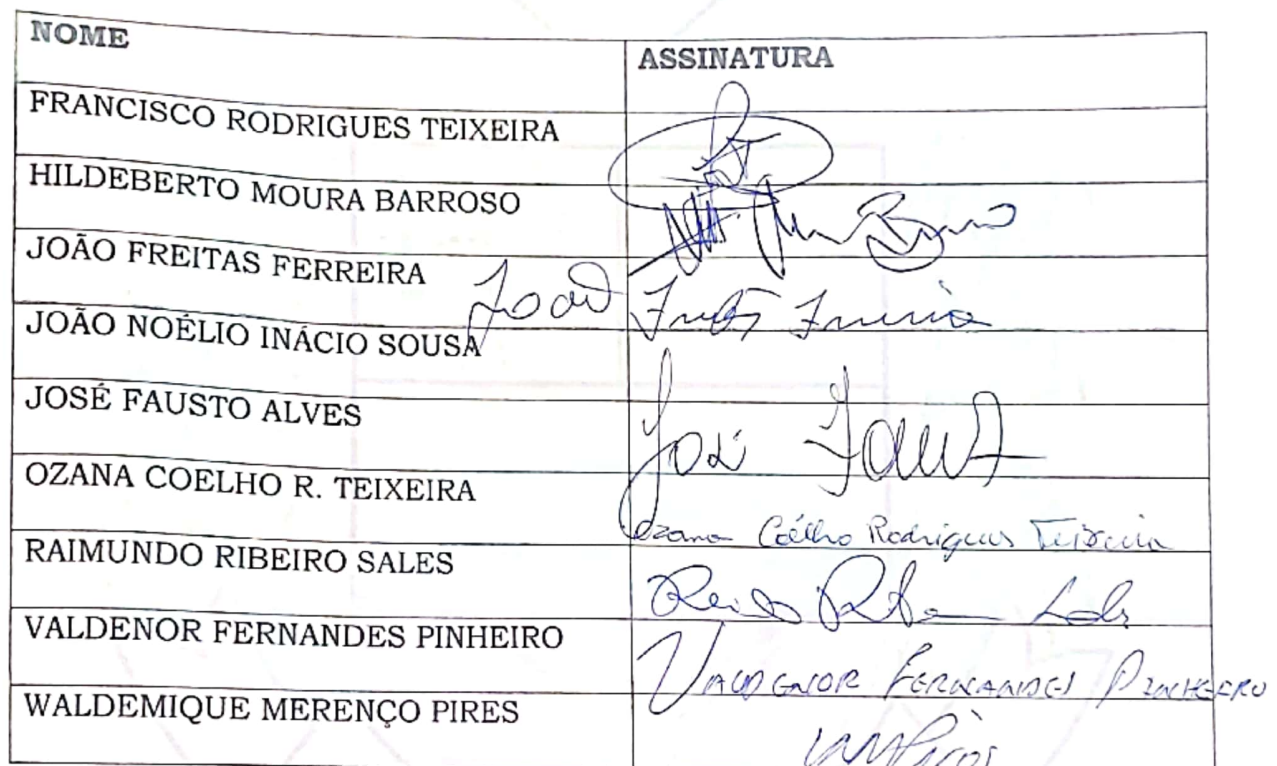 NOME ASSINATURA
FRANCISCO RODRIGUES TEIXEIRA
HILDEBERTO MOURA BARROSO
JOÃO FREITAS FERREIRA João Freitas Ferreira
JOÃO NOÉLIO INÁCIO SOUSA
JOSÉ FAUSTO ALVES José Fausto
OZANA COELHO R. TEIXEIRA Ozana Coêlho Rodrigues Teixeira
RAIMUNDO RIBEIRO SALES
VALDENOR FERNANDES PINHEIRO VALDENOR FERNANDES PINHEIRO
WALDEMIQUE MERENÇO PIRES